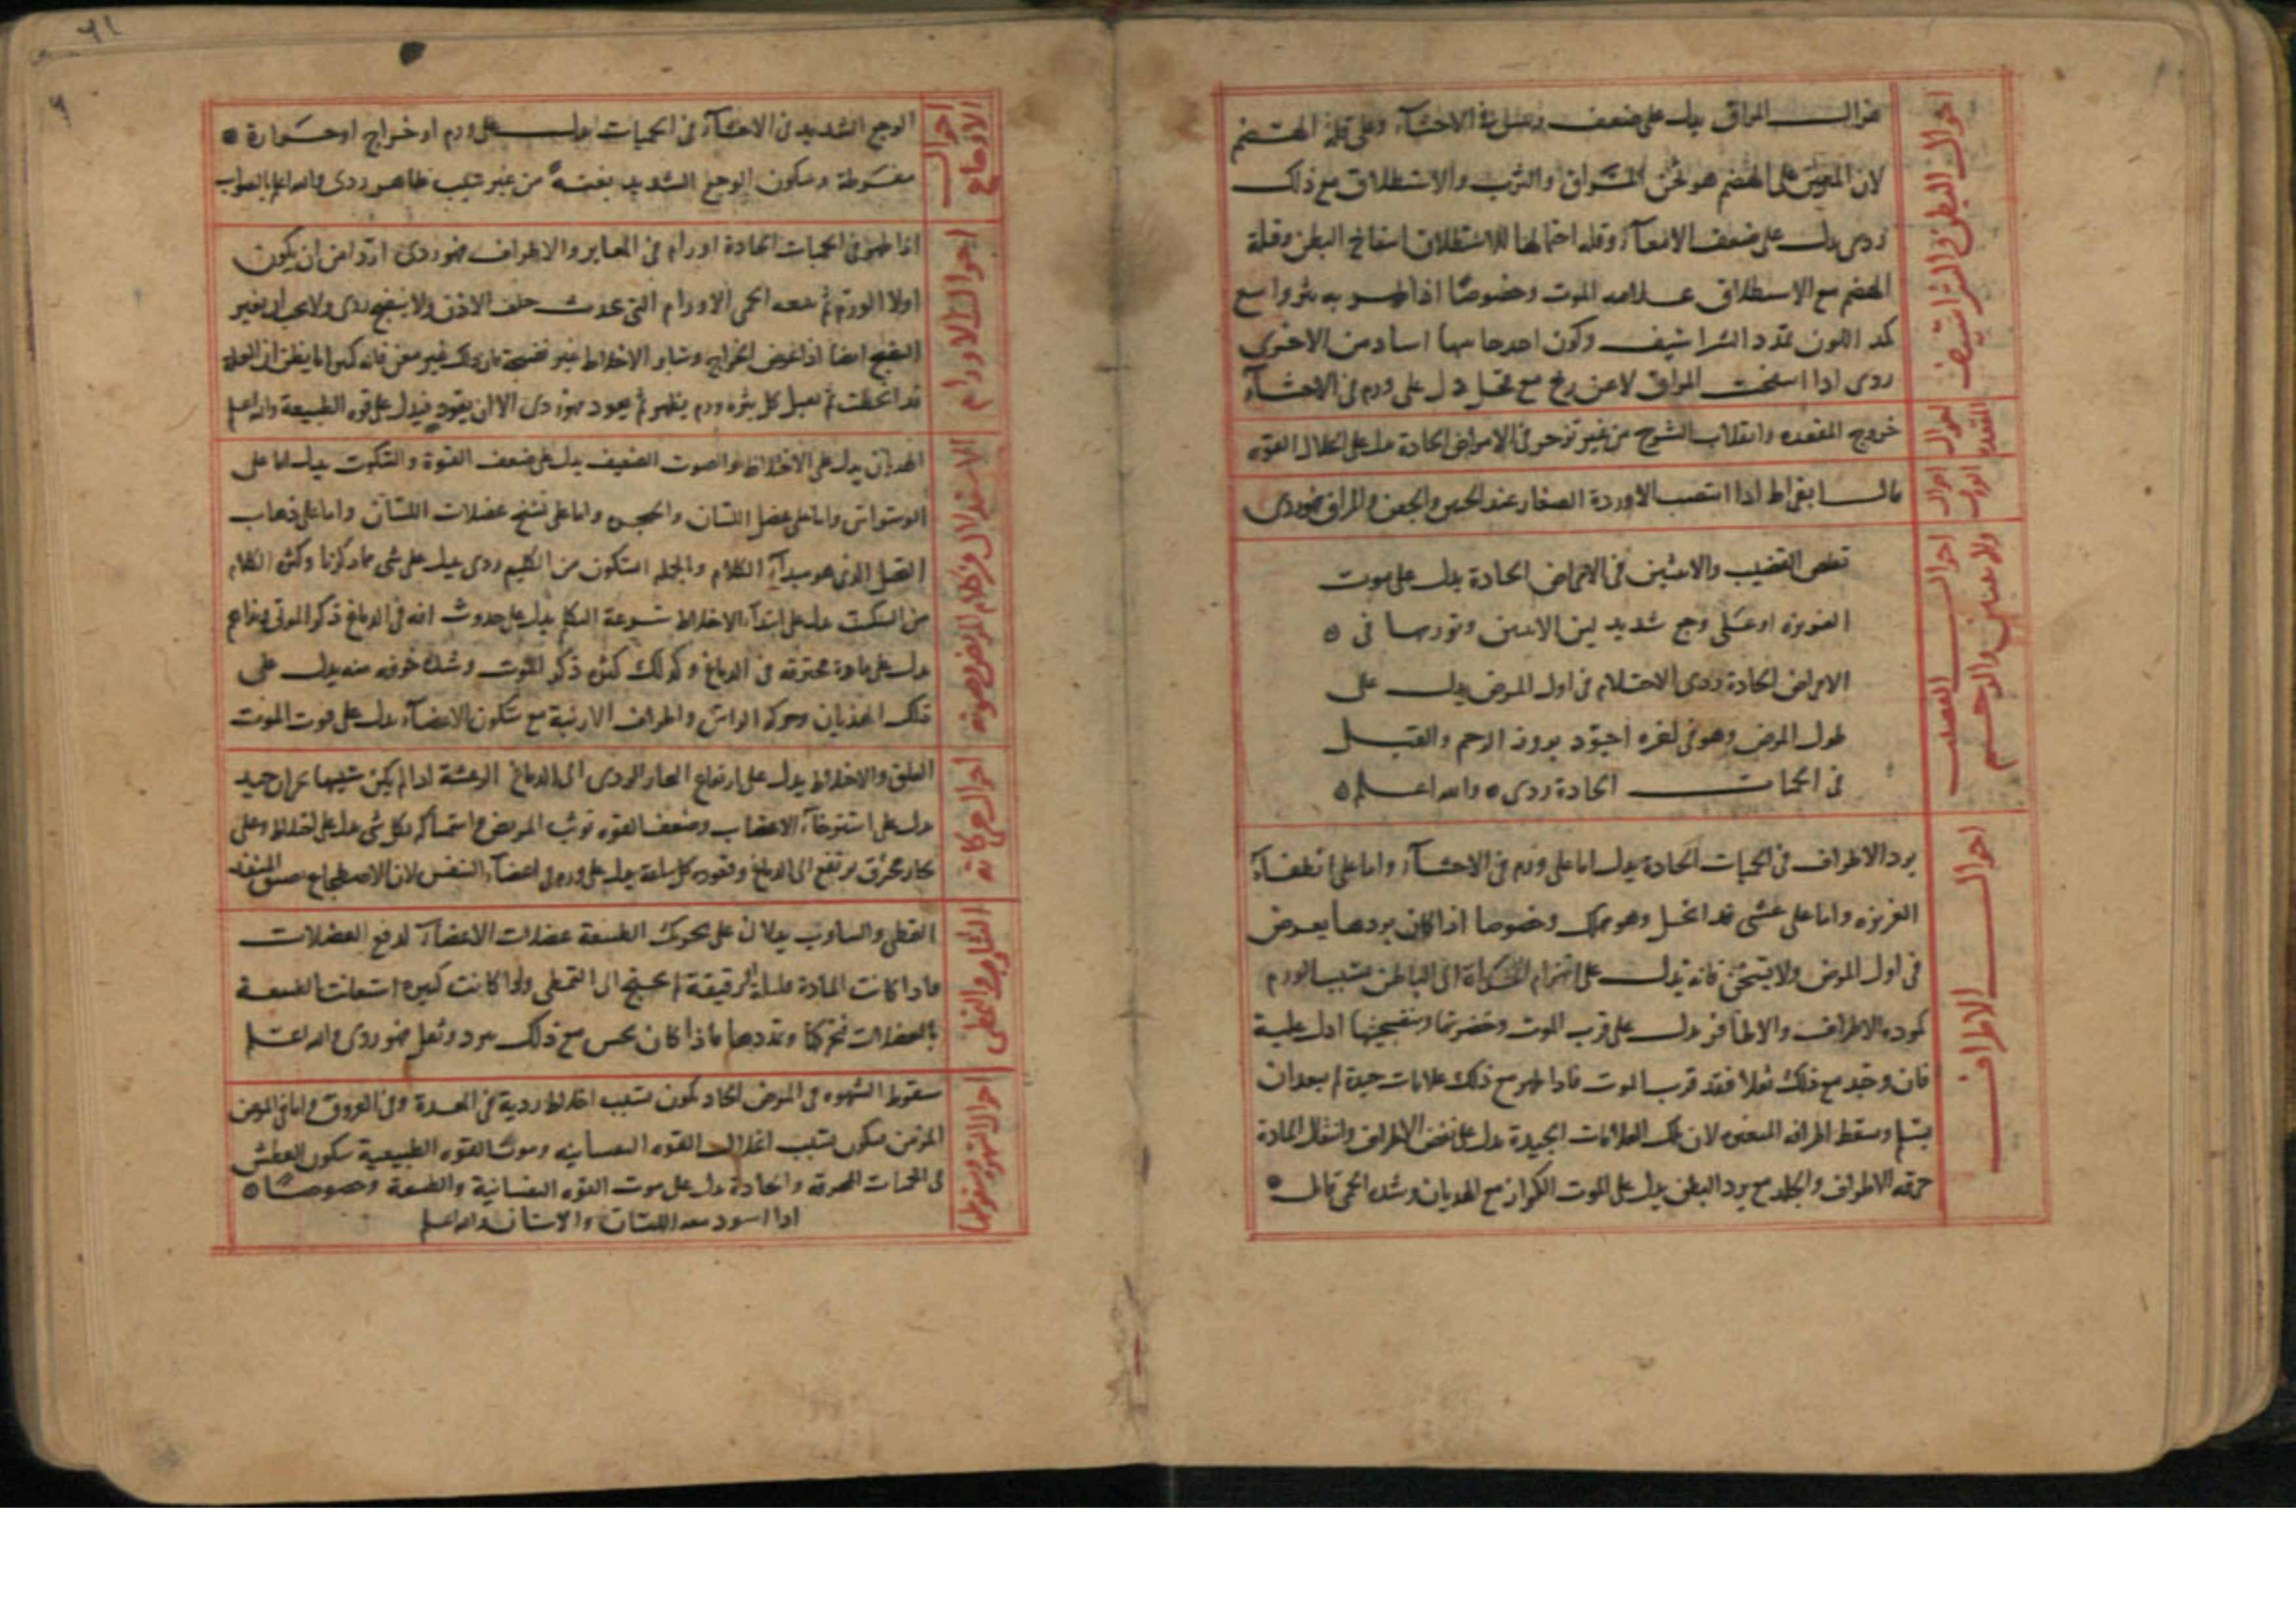 احوال البطن والشراسيف
هزال المراق يدل على ضعف في الاحشاء وعلى قلة الهضم
لان المعين على الهضم هو المراق والثرب والاستطلاق مع ذلك
ردى يدل على ضعف الامعاء وقلة احتمالها للاستطلاق انتفاخ البطن وقلة
الهضم مع الاستطلاق علامه الموت وخصوصا اذا ظهر به بثر واسع
كمد اللون تمدد الشراسيف وكون احدها اسا من الاخرى
ردى اذا انتفخت المراق لا عن ريح مع دل على ورم فى الاحشاء
احوال المقعدة
خروج المقعده وانقلاب الشرج من غير تزحر فى الامراض الحادة يدل على انحلال القوه
احوال
قال ابقراط اذا انتصب الاوردة الصغار عند والجفن والمراق فهو ردى
احوال القضيب والانثيين والرحم
تقلص القضيب والانثيين فى الامراض الحادة يدل على موت
الغريزه او على وجع شديد لين الانثيين فى
الامراض الحادة ردى الاحتلام فى اول المرض يدل على
طول المرض وهو فى اخره اجود بروز الرحم والقبل
فى الحميات الحادة ردى والله اعلم
احوال الاطراف
برد الاطراف فى الحميات الحادة يدل اما على ورم فى الاحشاء واما على انطفاء
الغريزه واما على غشى قد انحل وهو مهلك وخصوصا اذا كان بردها يعرض
فى اول المرض ولا يتسخن فانه يدل على انهزام الحرارة الى الباطن بسبب الورم
كموده الاطراف والاظافر يدل على قرب الموت وخضرتها ادل عليه
فان وجد مع ذلك ثقلا فقد قرب الموت فاذا ظهر مع ذلك علامات جيدة لم يبعد ان
يسلم وسقط اطرافه المتغيره لان تلك العلامات الجيدة يدل على الاطراف وانتقال المادة
حرقه الاطراف والجلد مع برد البطن يدل على الموت الكزاز مع الهذيان وشده الحمى قاتل
٦١
احوال الاوجاع
الوجع الشديد فى الاحشاء فى الحميات يدل على ورم او خراج او حرارة
مفرطة وسكون الوجع الشديد بغتة من غير سبب ظاهر ردى والله اعلم بالصواب
احوال الاورام
اذا ظهر فى الحميات الحادة اورام فى المغابن والاطراف فهو ردى اردا من ان يكون
اولا الورم ثم تتبعه الحمى الاورام التى تحدث خلف الاذن ولا ينضج ردى ولا يجب ان يغتر
النضج ايضا اذا عرض الخراج وسائر الاخلاط غير نضيجة فان ذلك غير مغن فانه كثيرا ما يظن ان العلة
قد انحطت ثم يقبل كل بثره ورم يظهر ثم يعود فهو ردى الا ان يقود فيدل على قوه الطبيعة والله اعلم
الاستدلال من كلام المريض وصوته
الهذيان يدل على الاختلاط والصوت الضعيف يدل على ضعف القوة والسكوت يدل اما على
الوسواس واما على عضل اللسان والحنجره واما على تشنج عضلات اللسان واما على ذهاب
الذى هو مبدأ الكلام وبالجملة السكون من التكلم ردى يدل على شى مما ذكرنا وكثرة الكلام
من السكيت يدل على ابتداء الاختلاط سرعة التكلم يدل على حدوث افه فى الدماغ ذكر الموتى
يدل على مادة محترقه فى الدماغ وكذلك كثره ذكر الموت وشده خوفه منه يدل على
ذلك الهذيان وحركة الراس واطراف الارنبة مع سكون الاعضاء يدل على قرب الموت
احوال حركاته
القلق والاختلاط يدل على ارتفاع البخار الردى الى الدماغ الرعشة اذا لم يكن سببها بحران جيد
يدل على استرخاء الاعصاب وضعف القوه توثب المريض واستمساكه بكل شى يدل على اختلاط وعلى
بخار محرق مرتفع الى الدماغ وقعوده كل ساعة يدل على ورم فى اعضاء النفس لان الاضطجاع يضيق المنفذ
التثاوب والتمطى
التمطى والتثاوب يدلان على تحريك الطبيعة عضلات الاعضاء لدفع الفضلات
فاذا كانت المادة قليلة او رقيقة لم يحتج الى التمطى واذا كانت كثيره استعانت الطبيعة
بالعضلات فتحركها وتمددها فاذا كان يحس مع ذلك ببرد وثقل فهو ردى والله اعلم
احوال الشهوه وسقوطها
سقوط الشهوه فى المرض الحاد يكون بسبب اخلاط ردية فى المعدة وفى العروق واما فى المرض
المزمن فيكون بسبب انحلال القوه النفسانيه وموت القوه الطبيعية سكون العطش
فى الحميات المحرقه والحادة يدل على موت القوه النفسانية والطبيعة وخصوصا
اذا اسود معه اللسان والاسنان والله اعلم